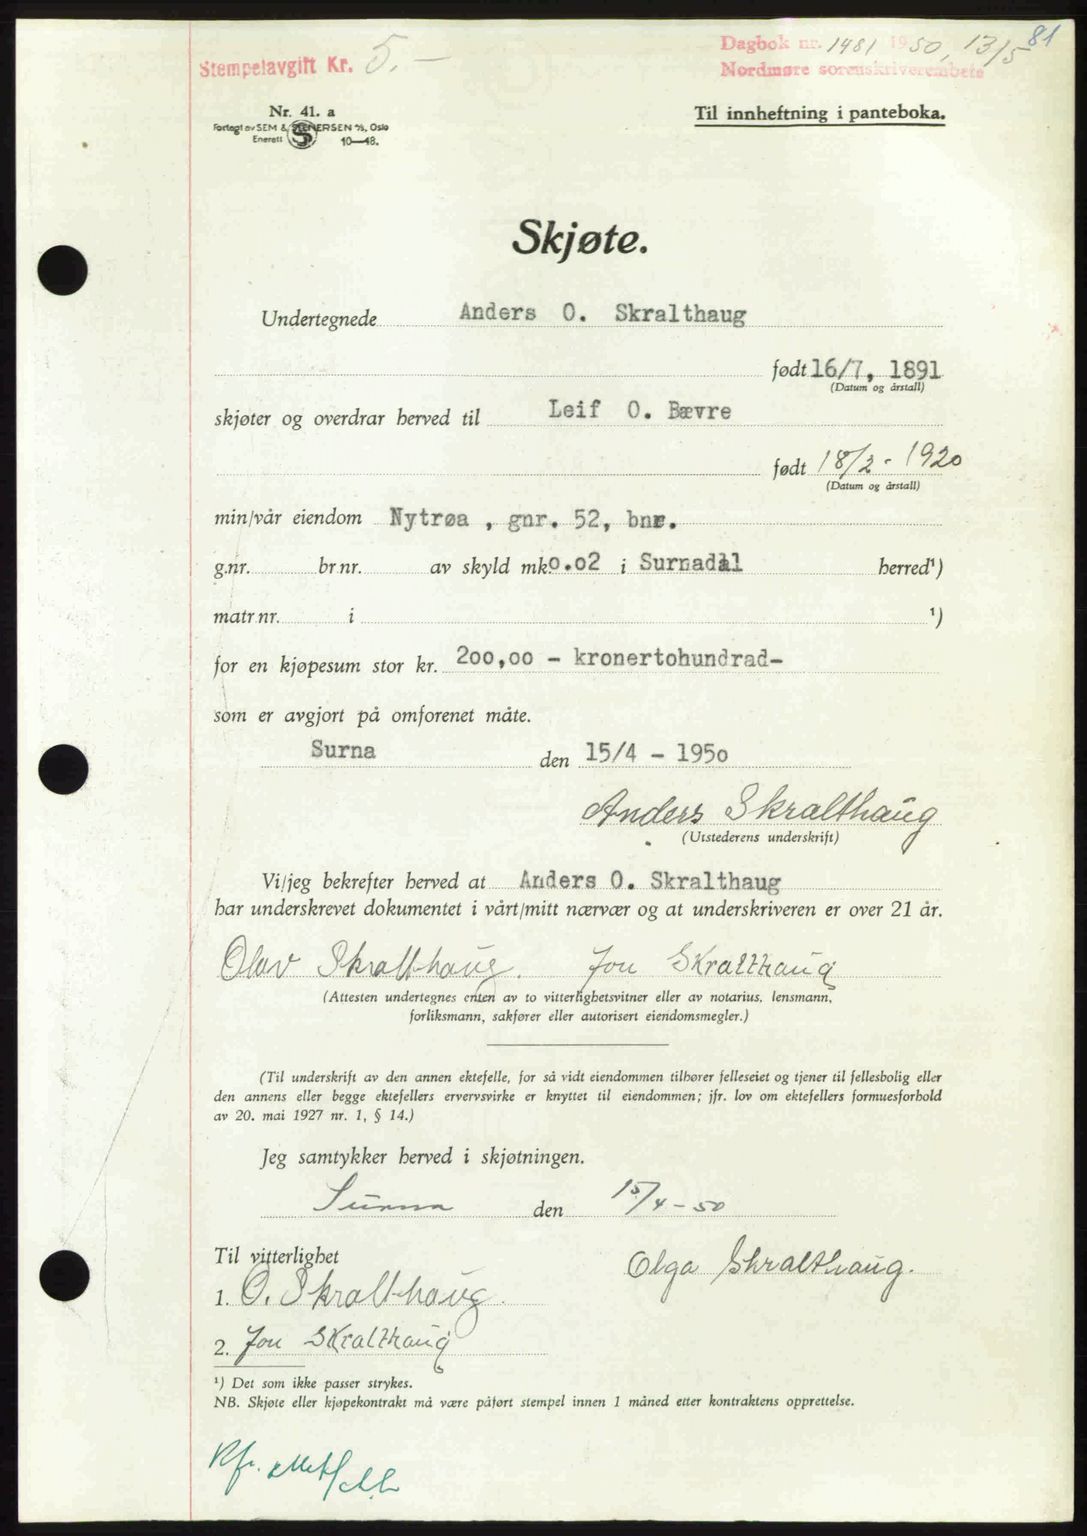 Stempelavgift Kr. 5.—
Dagbok nr. 1481 1950, 13/5 81
Nordmøre sorenskriverembete
Nr. 41. a
Forlagt av SEM & STENERSEN A/S, Oslo
Enerett 10—48.
Til innheftning i panteboka.
Skjøte.
Undertegnede Anders O. Skralthaug
født 16/7, 1891
(Datum og årstall)
skjøter og overdrar herved til Leif O. Bævre
født 18/2 - 1920
(Datum og årstall)
min/vår eiendom Nytrøa , gnr. 52, bnr.
g.nr. br nr. av skyld mk 0.02 i Surnadal herred¹)
matr.nr. i ¹)
for en kjøpesum stor kr. 200,00 - kronertohundrad-
som er avgjort på omforenet måte.
Surna den 15/4 - 1950
Anders Skralthaug
(Utstederens underskrift)
Vi/jeg bekrefter herved at Anders O. Skralthaug
har underskrevet dokumentet i vårt/mitt nærvær og at underskriveren er over 21 år.
Olav Skralthaug. Jon Skralthaug
(Attesten undertegnes enten av to vitterlighetsvitner eller av notarius, lensmann,
forliksmann, sakfører eller autorisert eiendomsmegler.)
(Til underskrift av den annen ektefelle, for så vidt eiendommen tilhører felleseiet og tjener til fellesbolig eller
den annens eller begge ektefellers ervervsvirke er knyttet til eiendommen; jfr. lov om ektefellers formuesforhold
av 20. mai 1927 nr. 1, § 14.)
Jeg samtykker herved i skjøtningen.
Surna den 15/4 - 50
Til vitterlighet
Olga Skralthaug.
1. O. Skralthaug.
2. Jon Skralthaug
¹) Det som ikke passer strykes.
NB. Skjøte eller kjøpekontrakt må være påført stempel innen 1 måned etter kontraktens opprettelse.